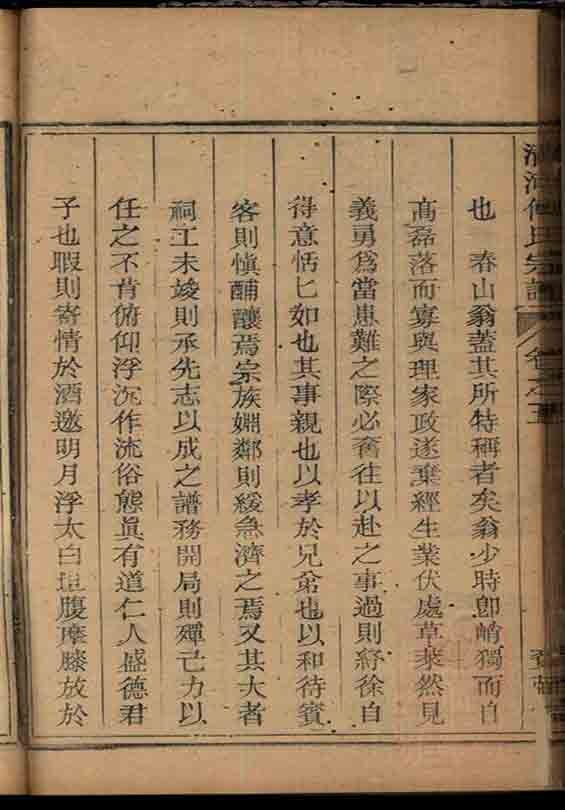 氏宗譜 卷之五
也 春山翁蓋其所特稱者矣翁少時卽崝獨而自
高磊落而寡與理家政遂棄經生業伏處草萊然見
義勇為當患難之際必奮往以赴之事過則紓徐自
得意恬匕如也其事親也以孝於兄弟也以和待賓
客則慎酺釀焉宗族婣鄰則緩急濟之焉又其大者
祠工未竣則承先志以成之譜務開局則殫己力以
任之不肯俯仰浮沉作流俗態眞有道仁人盛德君
子也暇則寄情於酒邀明月浮太白坦腹摩膝放於